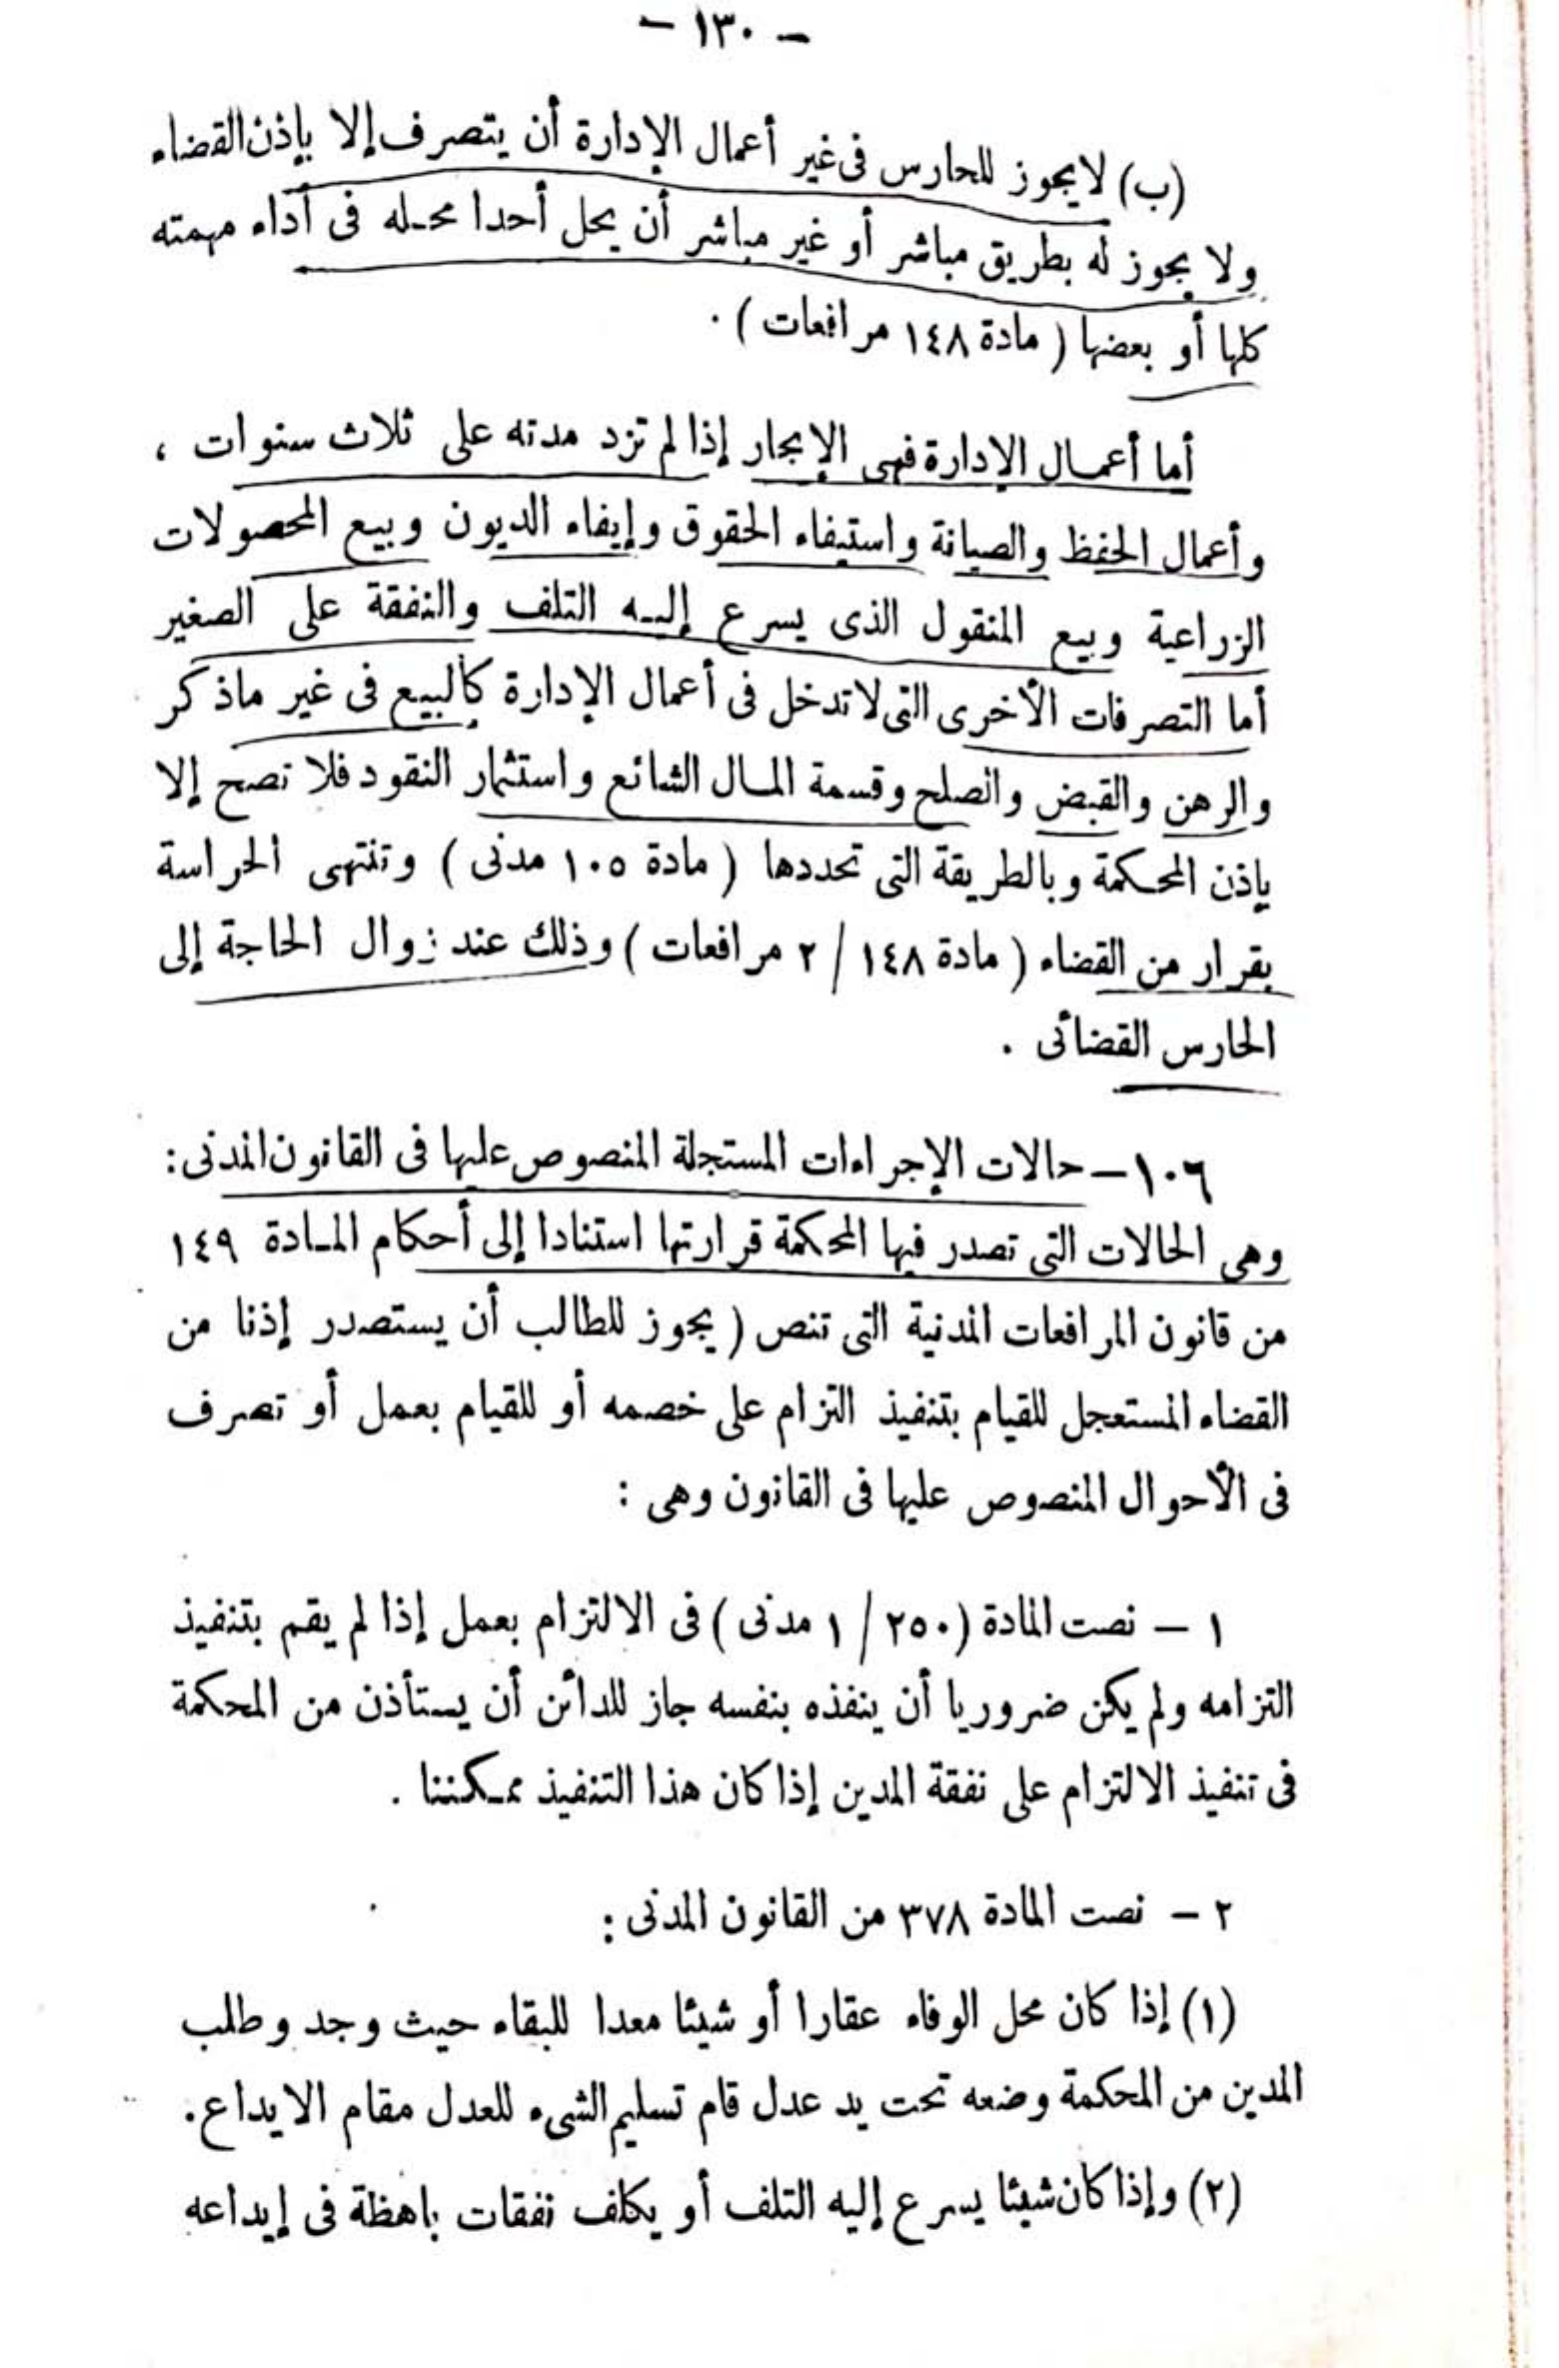 - ١٣٠ -
(ب) لا يجوز للحارس فى غير أعمال الإدارة أن يتصرف إلا بإذن القضاء
ولا يجوز له بطريق مباشر أو غير مباشر أن يحل أحدا محله فى أداء مهمته
كلها أو بعضها ( مادة ١٤٨ مرافعات ) .
أما أعمال الإدارة فهى الإيجار إذا لم تزد مدته على ثلاث سنوات ،
وأعمال الحفظ والصيانة واستيفاء الحقوق وإيفاء الديون وبيع المحصولات
الزراعية وبيع المنقول الذى يسرع إليه التلف والنفقة على الصغير
أما التصرفات الأخرى التى لا تدخل فى أعمال الإدارة كالبيع فى غير ماذكر
والرهن والقبض والصلح وقسمة المال الشائع واستثمار النقود فلا تصح إلا
بإذن المحكمة وبالطريقة التى تحددها ( مادة ١٠٥ مدنى ) وتنتهى الحراسة
بقرار من القضاء ( مادة ١٤٨ / ٢ مرافعات ) وذلك عند زوال الحاجة إلى
الحارس القضائى .
١٠٦ – حالات الإجراءات المستجلة المنصوص عليها فى القانون المدنى :
وهى الحالات التى تصدر فيها المحكمة قرارتها استنادا إلى أحكام المادة ١٤٩
من قانون المرافعات المدنية التى تنص ( يجوز للطالب أن يستصدر إذنا من
القضاء المستعجل للقيام بتنفيذ التزام على خصمه أو للقيام بعمل أو تصرف
فى الأحوال المنصوص عليها فى القانون وهى :
١ – نصت المادة ( ٢٥٠ / ١ مدنى ) فى الالتزام بعمل إذا لم يقم بتنفيذ
التزامه ولم يكن ضروريا أن ينفذه بنفسه جاز للدائن أن يستأذن من المحكمة
فى تنفيذ الالتزام على نفقة المدين إذا كان هذا التنفيذ ممكننا .
٢ – نصت المادة ٣٧٨ من القانون المدنى :
(١) إذا كان محل الوفاء عقارا أو شيئا معدا للبقاء حيث وجد وطلب
المدين من المحكمة وضعه تحت يد عدل قام تسليم الشىء للعدل مقام الايداع .
(٢) وإذا كان شيئا يسرع إليه التلف أو يكلف نفقات باهظة فى إيداعه